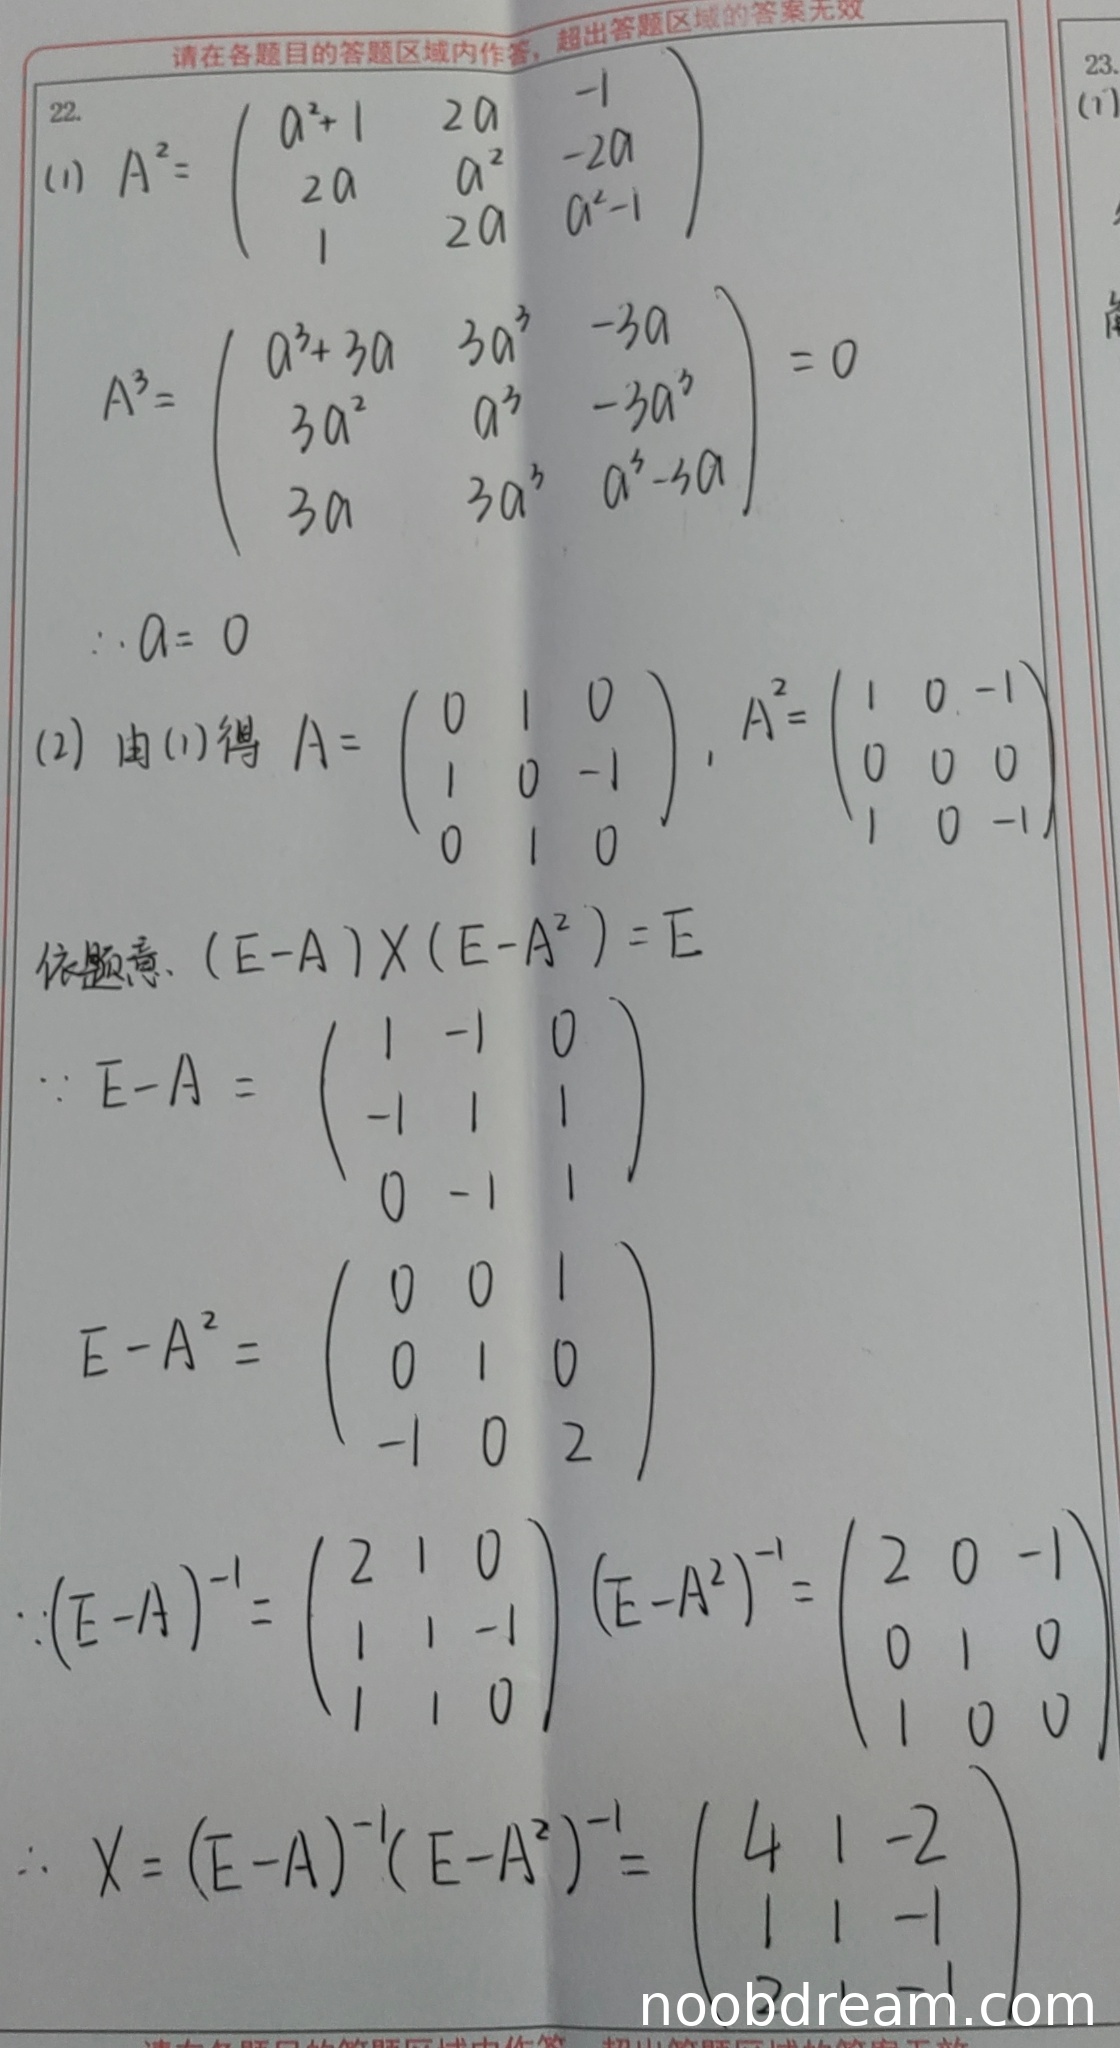 请在各题目的答题区域内作答，超出答题区域的答案无效
22.
23.
(1)
(1) A²= ( a²+1 2a -1
2a a² -2a
1 2a a²-1 )
A³= ( a³+3a 3a³ -3a
3a² a³ -3a³
3a 3a³ a³-3a ) =0
∴a= 0
(2) 由(1)得 A= ( 0 1 0
1 0 -1
0 1 0 ) , A²= ( 1 0 -1
0 0 0
1 0 -1 )
依题意、(E-A)X(E-A²)=E
∵ E-A = ( 1 -1 0
-1 1 1
0 -1 1 )
E-A² = ( 0 0 1
0 1 0
-1 0 2 )
∵(E-A)⁻¹= ( 2 1 0
1 1 -1
1 1 0 ) (E-A²)⁻¹= ( 2 0 -1
0 1 0
1 0 0 )
∴ X=(E-A)⁻¹(E-A²)⁻¹= ( 4 1 -2
1 1 -1
2 1 -1 )
noobdream.com